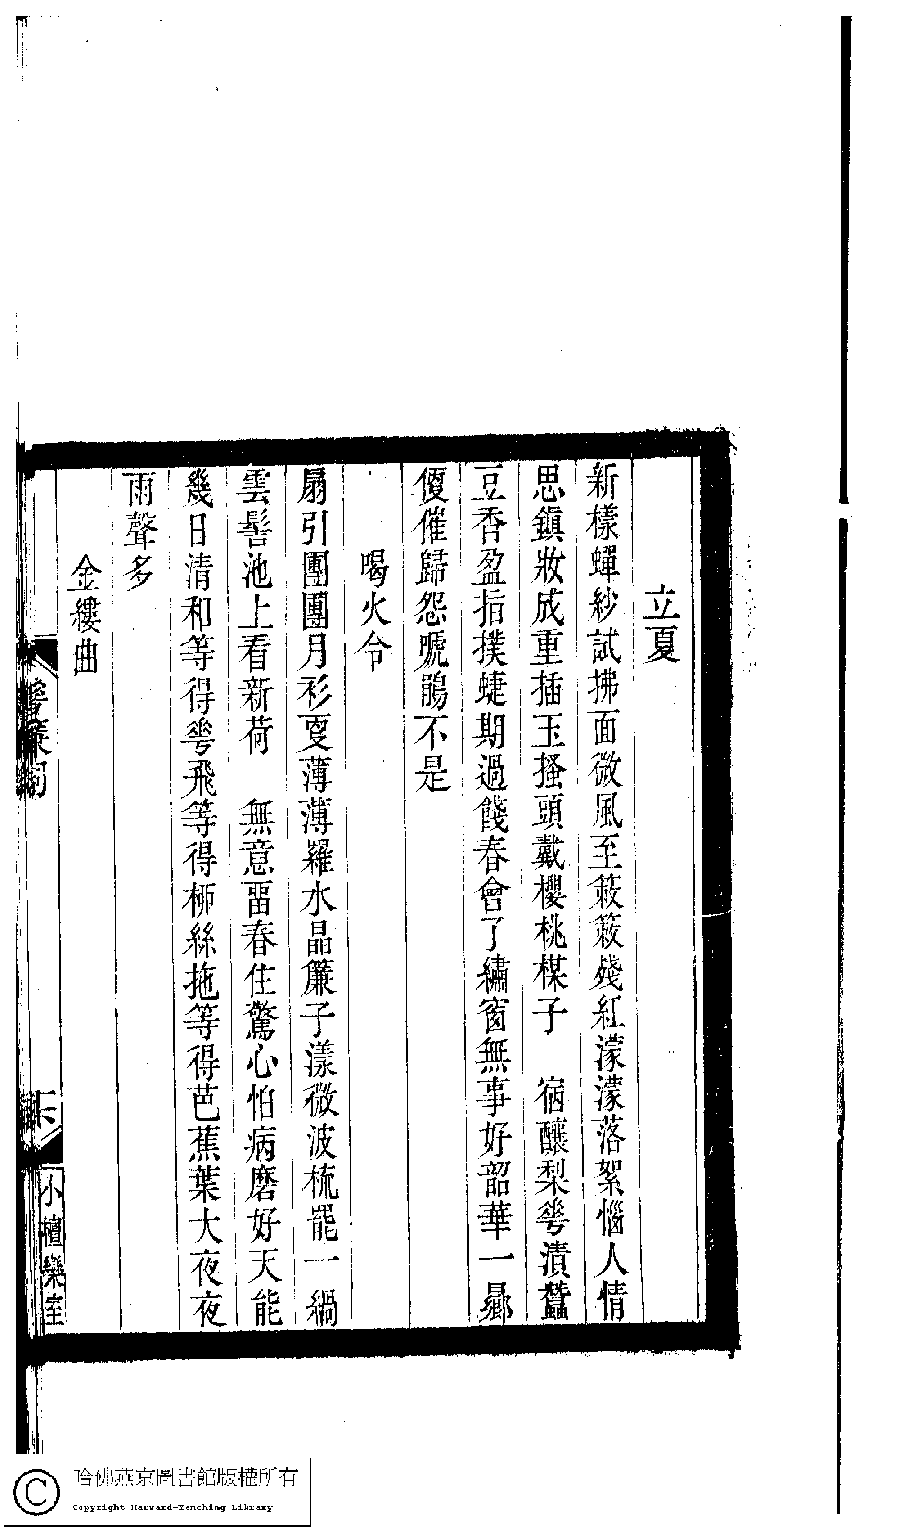 立夏
新樣蟬紗試拂面微風至簌簌殘紅濛濛落絮惱人情
思鎭妝成重插玉搔頭戴櫻桃楳子　宿釀梨雩漬蠶
豆香盈指撲蜨期過餞春會了繡窗無事好韶華一曏
傻催歸怨鵙鶻不是
喝火令
扇引團團月衫夏薄薄羅水晶簾子漾微波梳罷一緺
雲髻池上看新荷　無意畱春住驚心怕病磨好天能
幾日清和等得雩飛等得桺絲拖等得芭蕉葉大夜夜
雨聲多
金縷曲
簾詞
小檀欒室
哈佛燕京圖書館版權所有
Copyright Harvard-Yenching Library